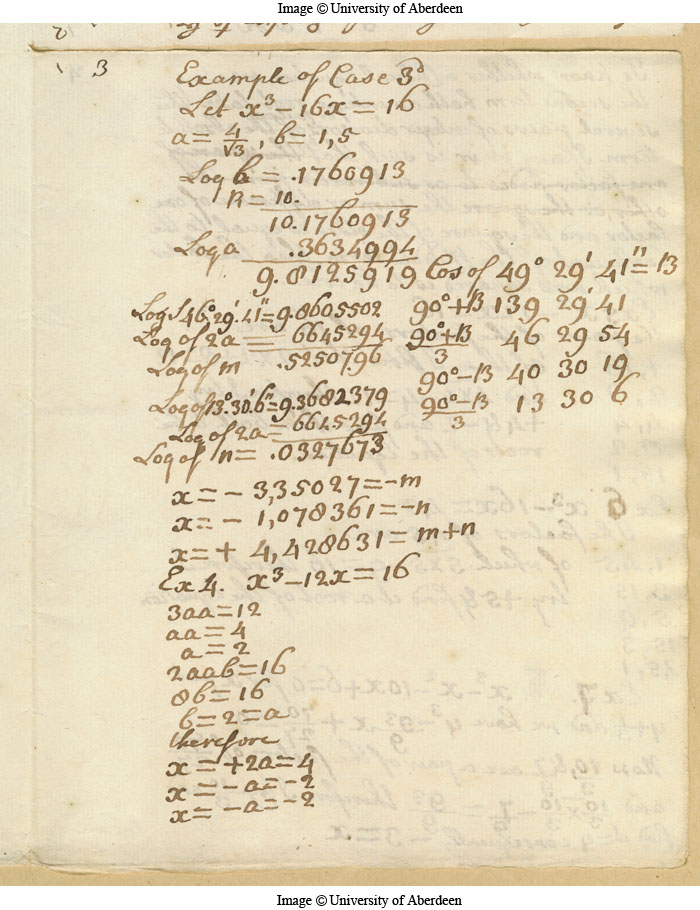 Image © University of Aberdeen
3
Example of Case 3d
Let x³ - 16x = 16
a = 4/√3, b = 1,5
Log b = .1760913
R = 10.
10.1760913
Log a .3634994
9.8125919 Cos of 49° 29' 41" = B
Log S 46° 29' 41" = 9.8605502 90° + B 139 29' 41
Log of 2a = 6645294 90° + B / 3 46 29 54
Log of m .5250796 90° - B 40 30 19
Log of 13° 30' 6" = 9.3682379 90° - B / 3 13 30 6
Log of 2a = 6645294
Log of n = .0327673
x = - 3,35027 = -m
x = - 1,078361 = -n
x = + 4,428631 = m + n
Ex 4. x³ - 12x = 16
3aa = 12
aa = 4
a = 2
2aab = 16
8b = 16
b = 2 = a
therefore
x = +2a = 4
x = -a = -2
x = -a = -2
Image © University of Aberdeen